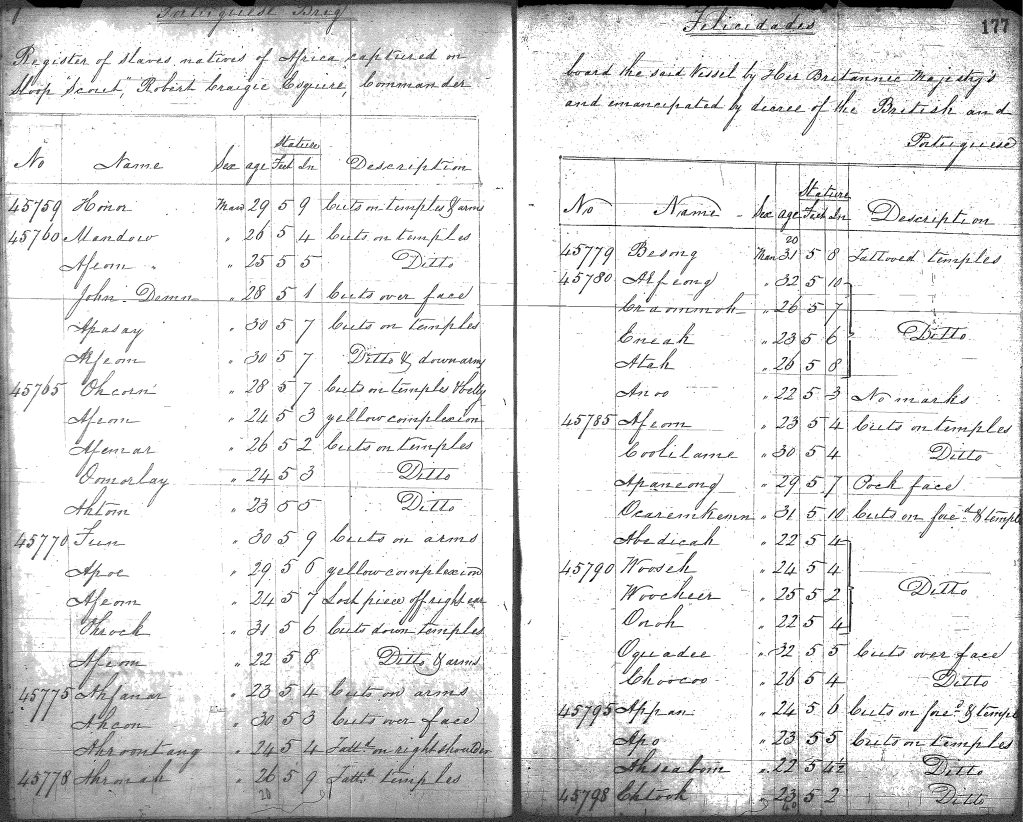 Portuguese Brig
Register of slaves, natives of Africa captured on
Sloop "Scout", Robert Craigie Esquire, Commander
Stature
No Name Sex age Feet In Description
45759 Honor Man 29 5 9 Cuts on temples & arms
45760 Mandow " 26 5 4 Cuts on temples
Afeom " 25 5 5 Ditto
John Demn " 28 5 1 Cuts over face
Apasay " 30 5 7 Cuts on temples
Akfeom " 30 5 7 Ditto & down arms
45765 Ohcorn " 28 5 7 Cuts on temples & belly
Afeom " 24 5 3 yellow complexion
Afemar " 26 5 2 Cuts on temples
Oomorlay " 24 5 3 Ditto
Ahtom " 23 5 5 Ditto
45770 Fun " 30 5 9 Cuts on arms
Apoe " 29 5 6 yellow complexion
Afeom " 24 5 7 Lost piece off right ear
Ohrock " 31 5 6 Cuts down temples
Afeom " 22 5 8 Ditto & arms
45775 Ahfanar " 23 5 4 Cuts on arms
Ahcon " 30 5 3 Cuts over face
Ahroontang " 24 5 4 Tattd. on right shoulder
45778 Ahrmah " 26 5 9 Tattd. temples
20
177
Felicidades
board the said Vessel by Her Britannic Majesty's
and emancipated by decree of the British and
Portuguese
Stature
No Name Sex age Feet In Description
20
45779 Besong Man 31 5 8 Tattooed temples
45780 Akfeong " 32 5 10
Craommoh " 26 5 7
Eneah " 23 5 6 Ditto
Atah " 26 5 8
Anoo " 22 5 3 No marks
45785 Afeom " 23 5 4 Cuts on temples
Coolilame " 30 5 4 Ditto
Apaneong " 29 5 7 Pock face
Ocaremkemn " 31 5 10 Cuts on fored. & temple
Abedicah " 22 5 4
45790 Wooseh " 24 5 4
Woocheer " 25 5 2 Ditto
Oroh " 22 5 4
Oguadee " 32 5 5 Cuts over face
Choocoo " 26 5 4 Ditto
45795 Appan " 24 5 6 Cuts on fored. & temple
Apo " 23 5 5 Cuts on temples
Ahseabom " 22 5 4½ Ditto
45798 Chtooh " 23 5 2 Ditto
40